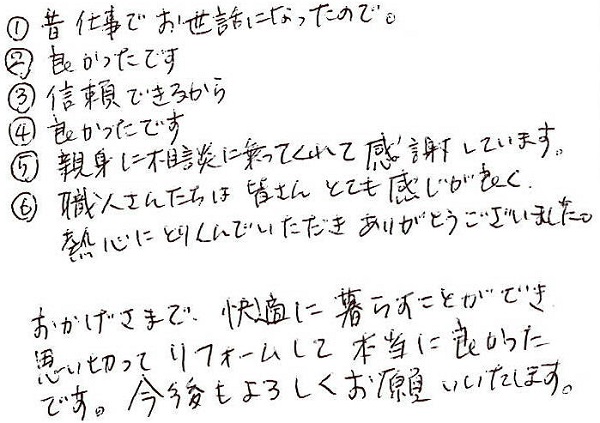 ① 昔仕事でお世話になったので。
② 良かったです
③ 信頼できるから
④ 良かったです
⑤ 親身に相談に乗ってくれて感謝しています。
⑥ 職人さんたちは皆さんとても感じが良く、
熱心にとりくんでいただきありがとうございました。
おかげさまで、快適に暮らすことができ
思い切ってリフォームして本当に良かった
です。今後もよろしくお願いいたします。